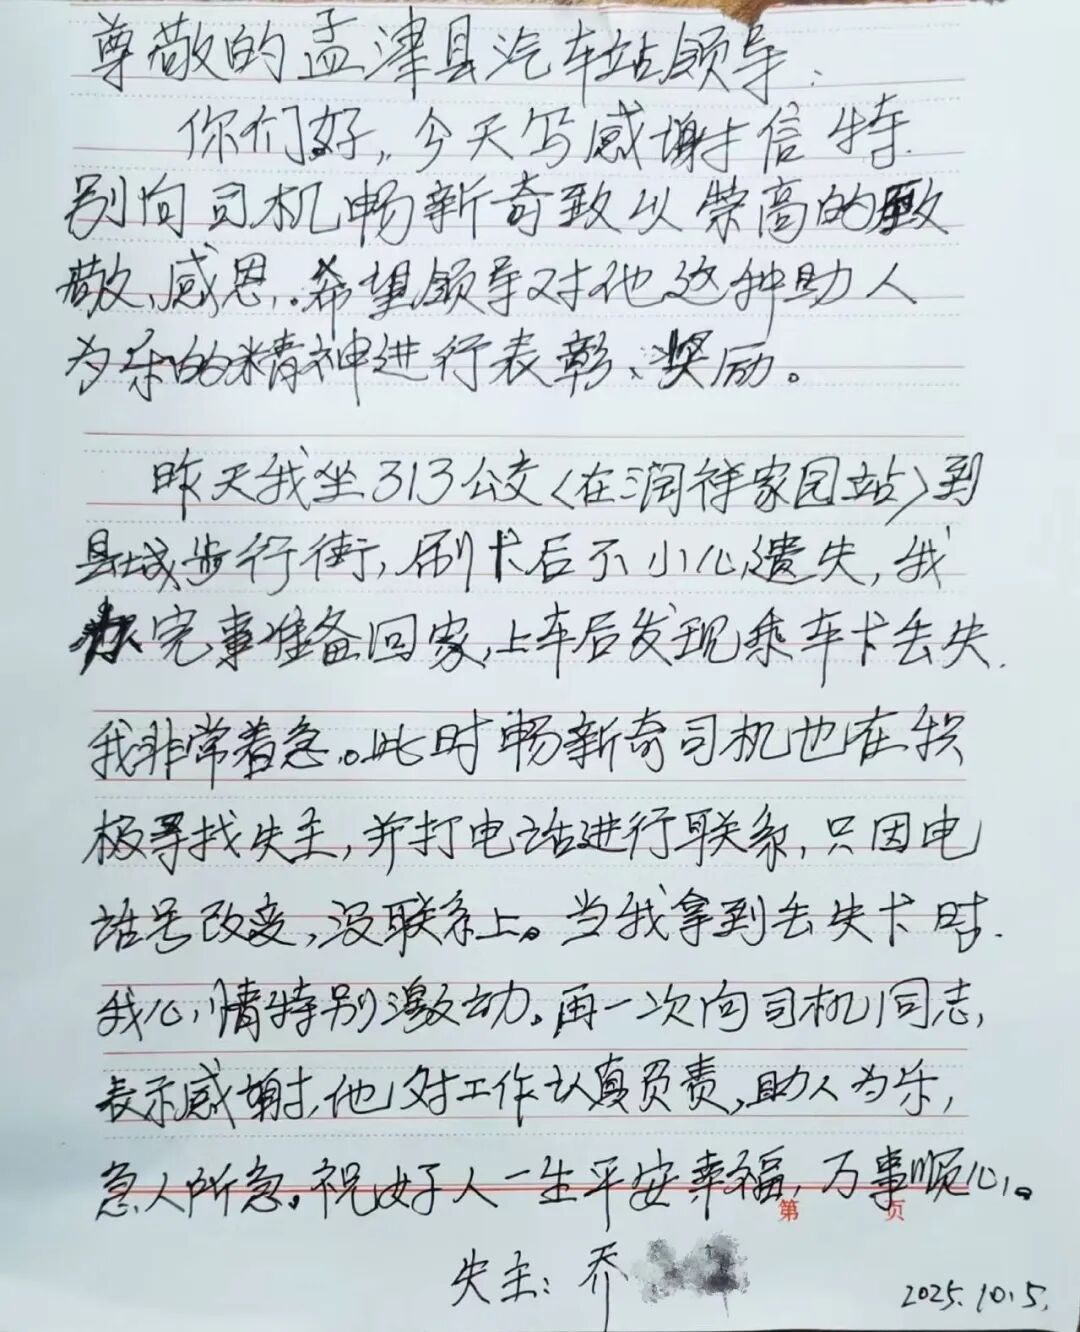 尊敬的孟津县汽车站领导:
你们好,今天写感谢信特
别向司机畅新奇致以荣高的致
敬、感恩,。希望领导对他这种助人
为乐的精神进行表彰、奖励。
昨天我坐313公交〈在润祥家园站〉到
县城步行街,刷卡后不小心遗失,我
办完事准备回家,上车后发现乘车卡丢失.
我非常着急。此时畅新奇司机也在积
极寻找失主,并打电话进行联系,只因电
话号改变,没联系上。当我拿到丢失卡时.
我心情特别激动。再一次向司机同志,
表示感谢,他对工作认真负责,助人为乐,
急人所急。祝好人一生平安幸福,万事顺心。
第 页
失主:乔
2025.10.5.